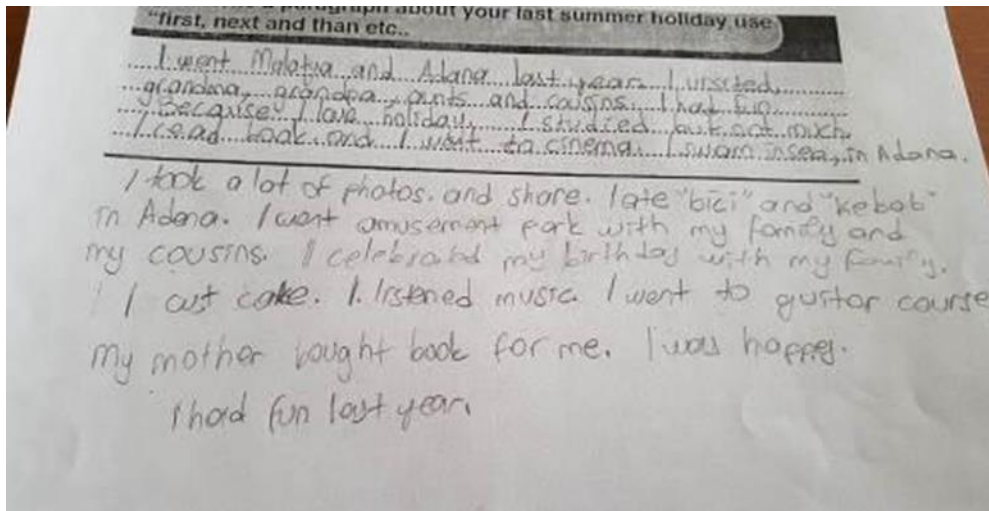 paragraph about your last summer holiday, use
"first, next and than etc..
I went Malatya and Adana last year. I visited
grandma, grandpa, aunts and cousins. I had fun
Because I love holiday. I studied but not much.
I read book and I went to cinema. I swam in sea, in Adana.
I took a lot of photos. and share. I ate "bici" and "kebab"
in Adana. I went amusement park with my family and
my cousins. I celebrated my birthday with my family.
I cut cake. I listened music I went to guitar course
my mother bought book for me. I was happy.
I had fun last year.